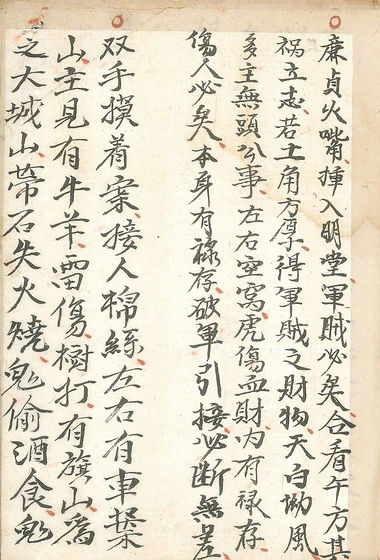 廉貞火嘴揷入明堂軍賊必矣合看午方其
禍立志若土角方䆒得軍賊之財物天白坳風
多主無頭公事左右空窩虎傷血財内有祿存
傷人必矣本身有祿存破軍引接必断無差
双手摸着案接人棉絲左右有車葉
山主見有牛羊雷傷樹打有旗山爲
之大城山帶石失火燒鬼偷酒食鬼